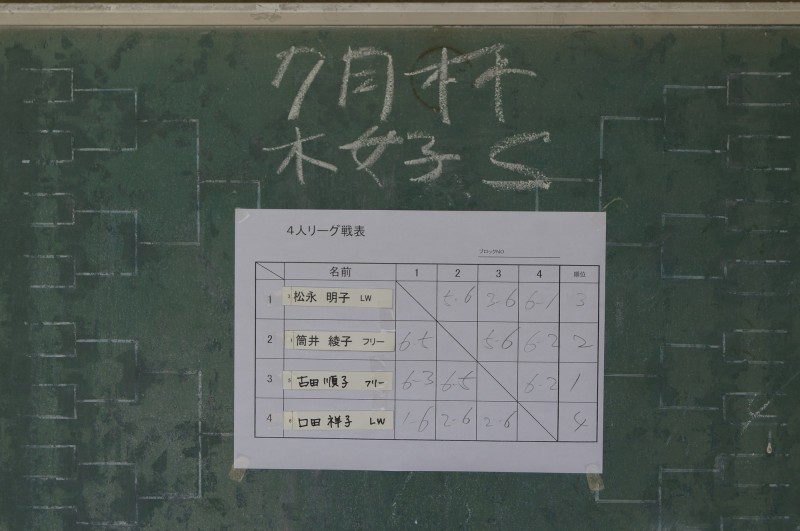 7月杯
木女子 S
4人リーグ戦表
ブロックNO
名前 1 2 3 4 順位
1 松永 明子 LW 5-6 3-6 6-1 3
2 筒井 綾子 フリー 6-5 5-6 6-2 2
3 古田 順子 フリー 6-3 6-5 6-2 1
4 口田 祥子 LW 1-6 2-6 2-6 4